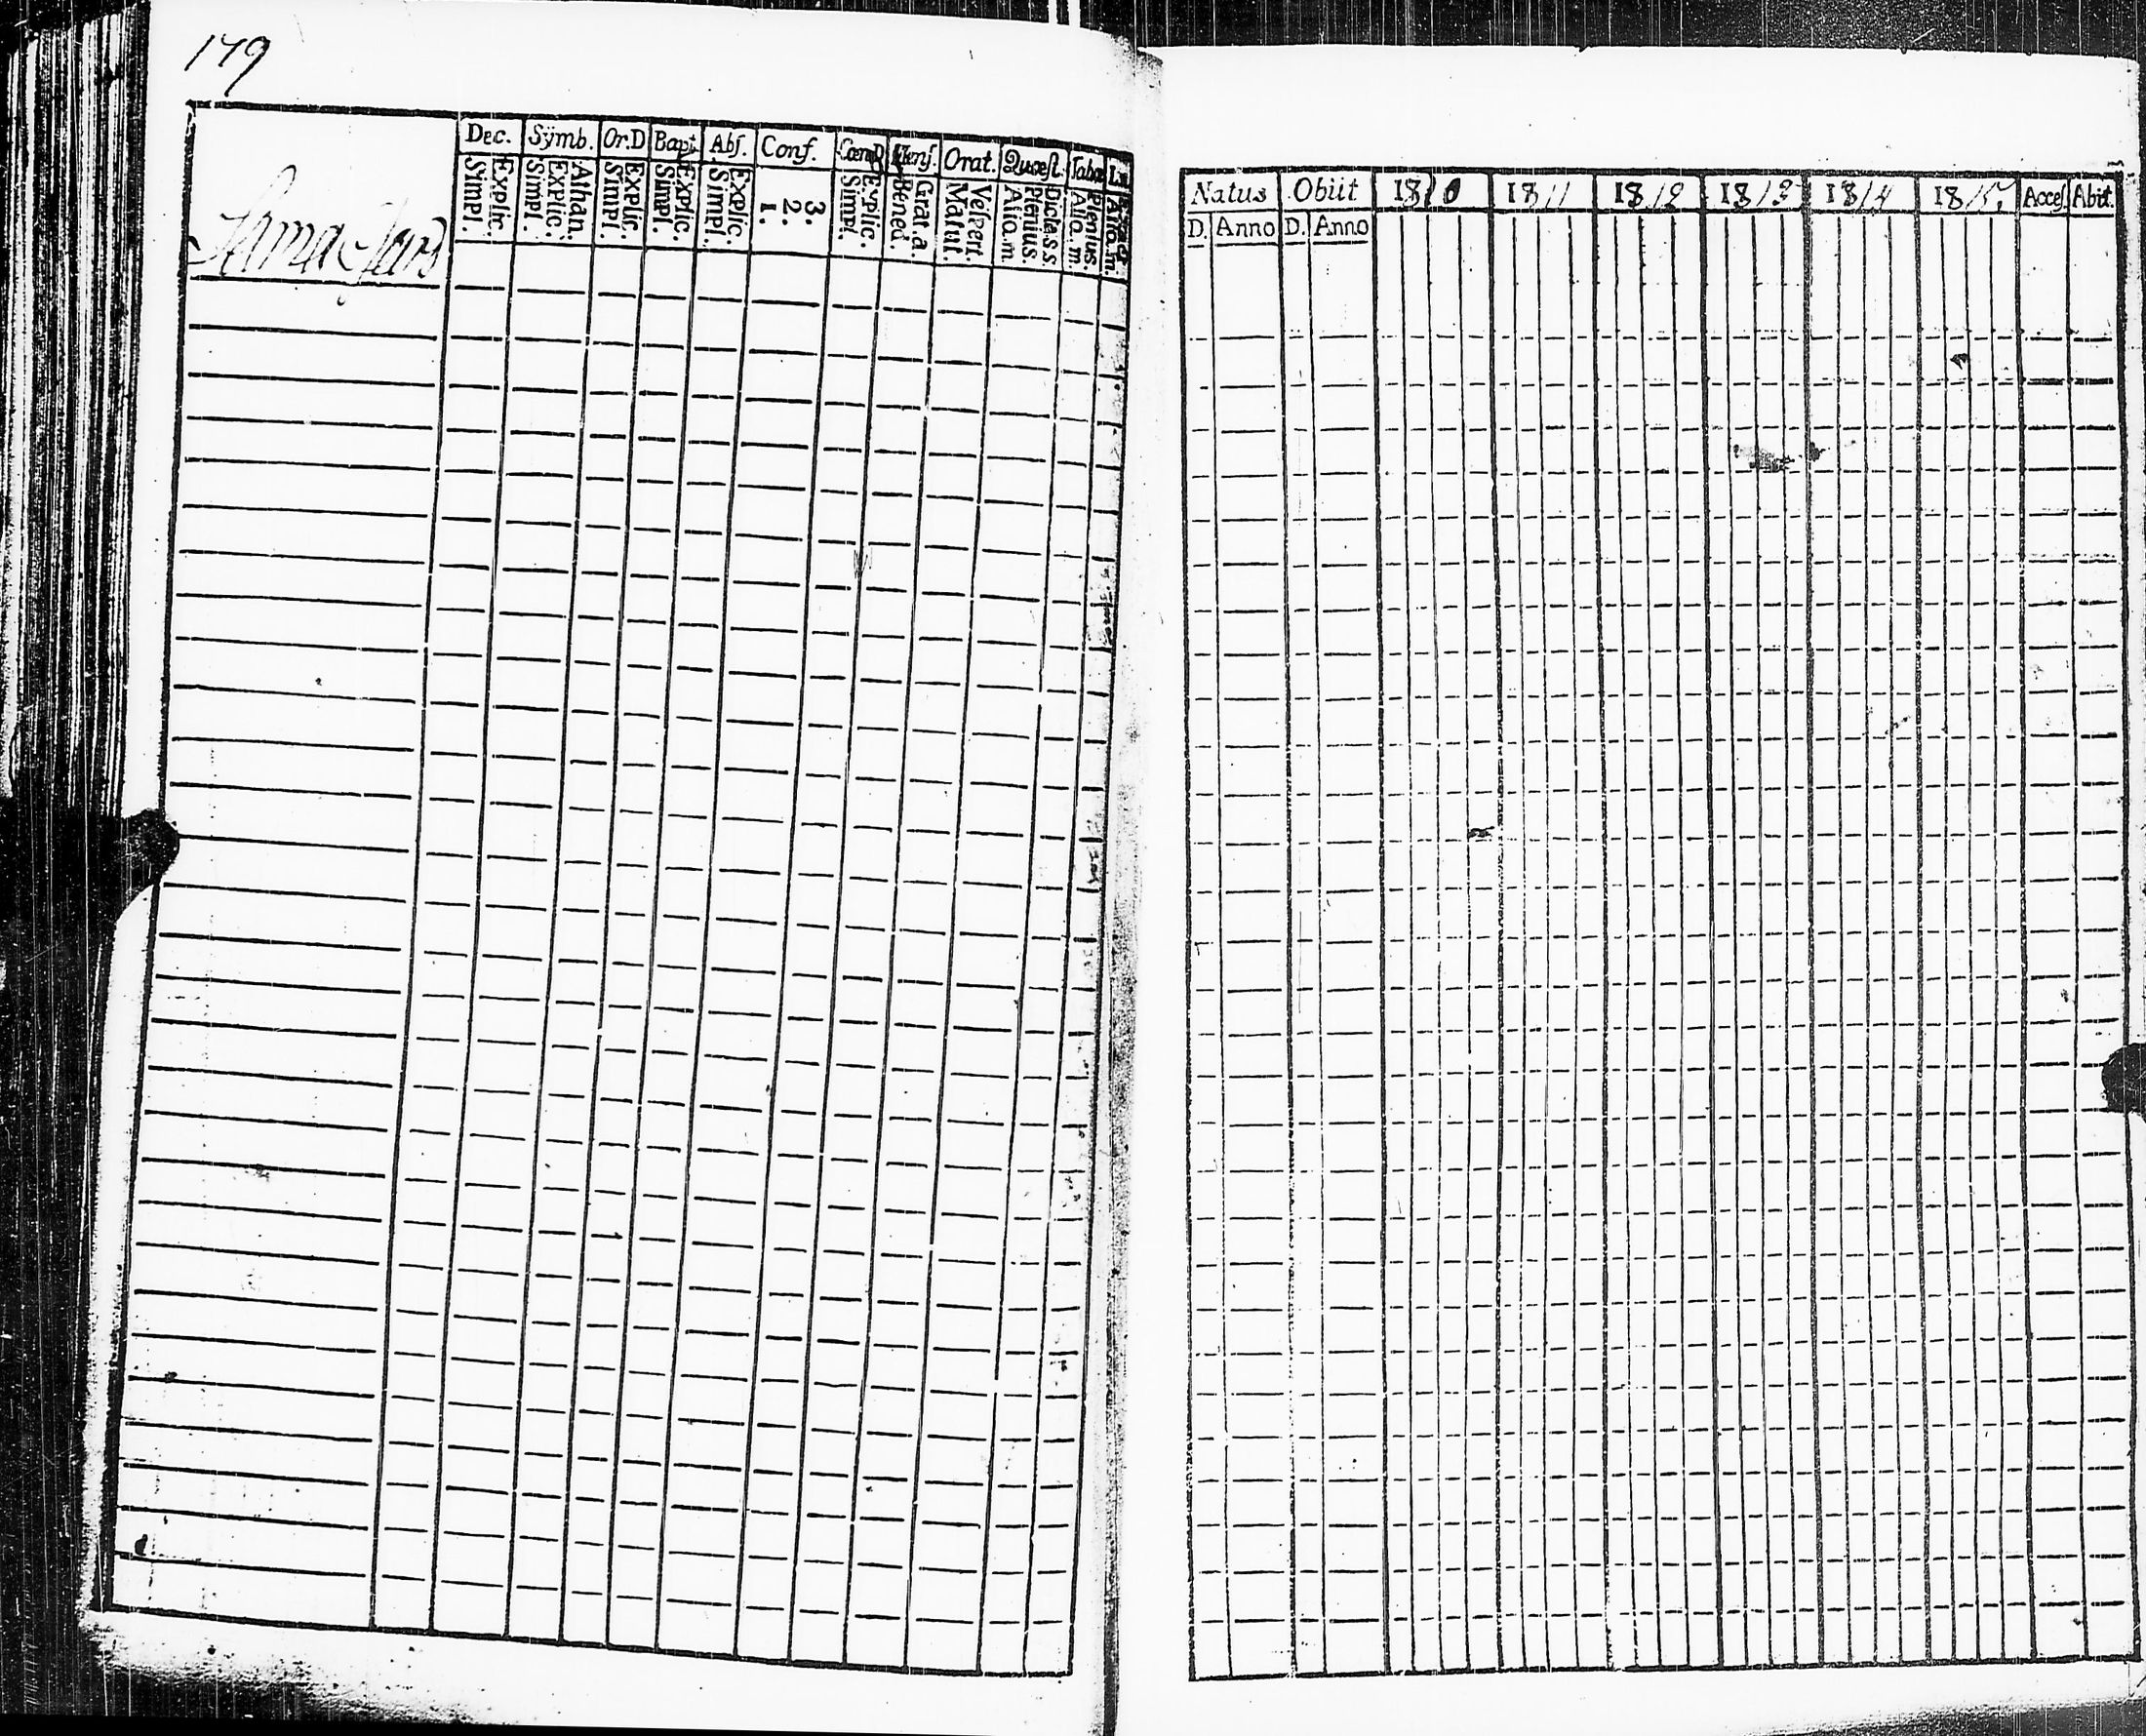 179
Dec. Sÿmb. Or.D Bapt. Abſ. Conf. Cœn.D Menſ. Orat. Quæſt. Taba
Simpl. Explic. Simpl. Explic. Athan. Simpl. Explic. Simpl. Explic. Simpl. Explic. 1. 2. 3. Simpl. Explic. Bened. Grat. a. Matut. Veſpert. Aliq. m Plenius Dicta s. s. Aliq. m. Plenius. Aliq. m.
Sama Gård
Natus Obiit 1810 1811 1812 1813 1814 1815 Acceſ. Abiit.
D. Anno D. Anno